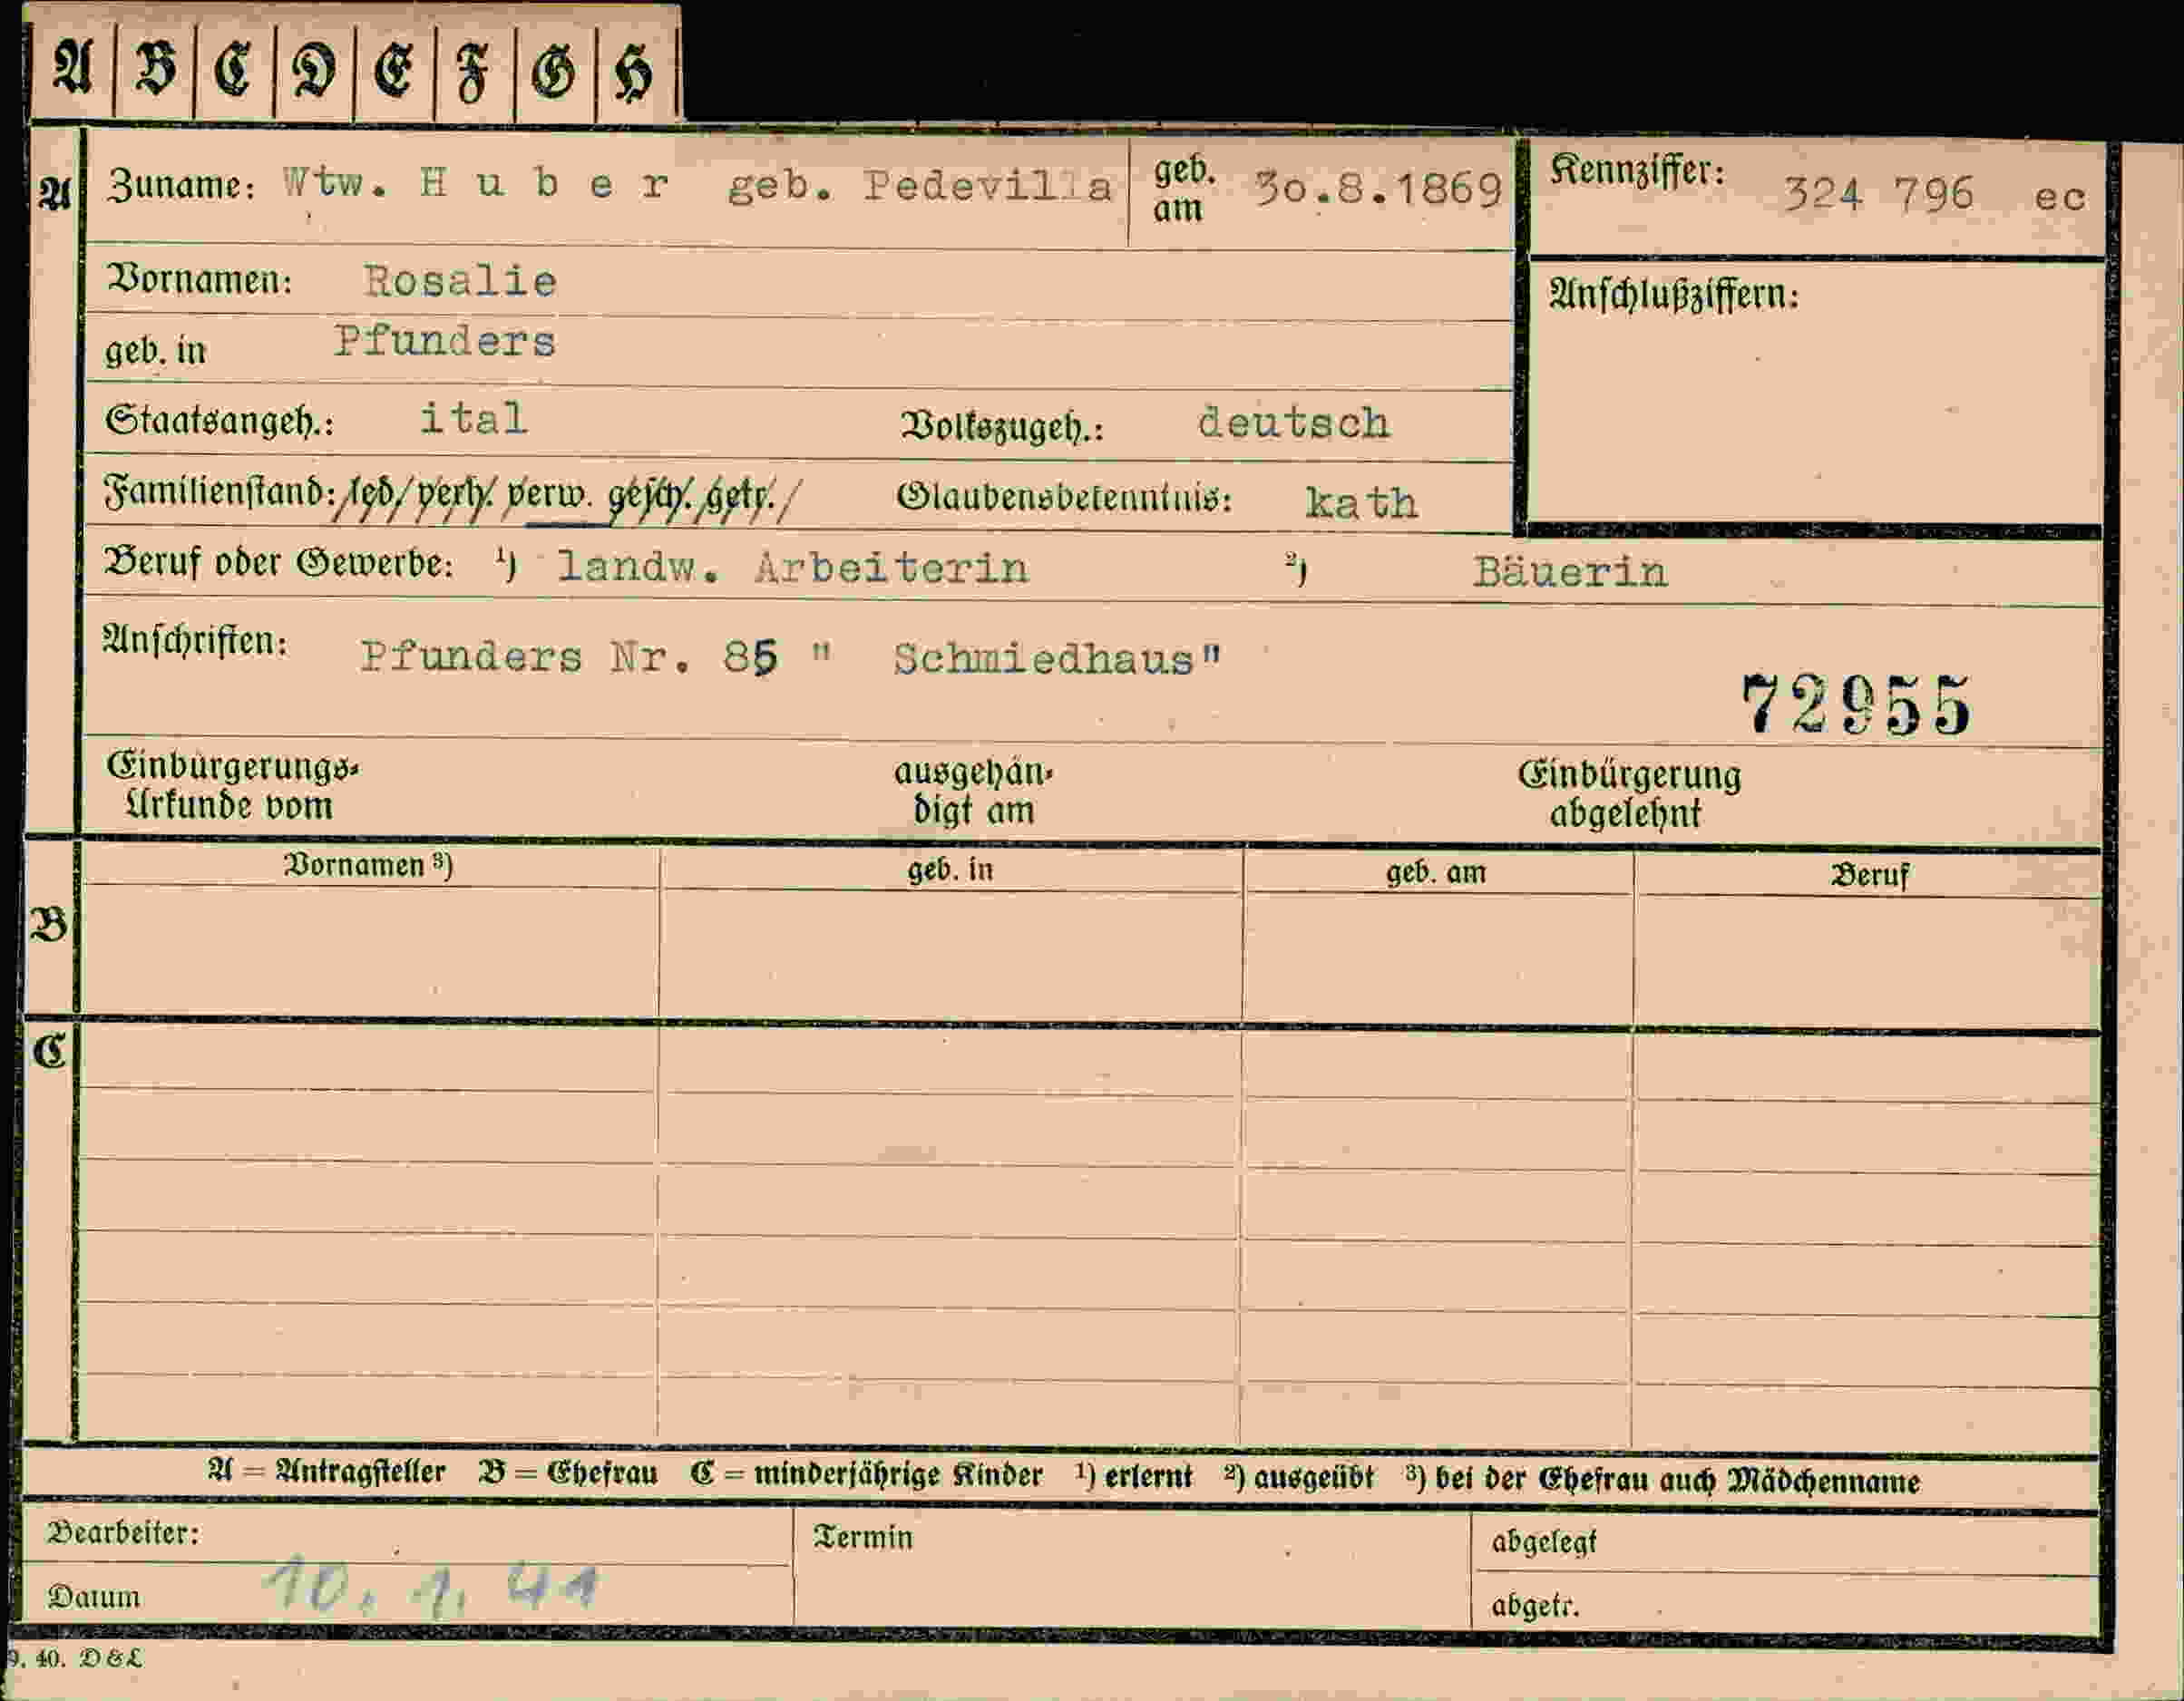 A B C D E F G H
A Zuname: Wtw. H u b e r geb. Pedevilla geb. am 30.8.1869 Kennziffer: 324 796 ec
Vornamen: Rosalie
Anschlußziffern:
geb. in Pfunders
Staatsangeh.: ital Volkszugeh.: deutsch
Familienstand: led/ verh. verw. gesch. getr. Glaubensbekenntnis: kath
Beruf oder Gewerbe: ¹) landw. Arbeiterin ²) Bäuerin
Anschriften: Pfunders Nr. 85 " Schmiedhaus"
72955
Einbürgerungs- ausgehän- Einbürgerung
Urkunde vom digt am abgelehnt
Vornamen ³) geb. in geb. am Beruf
B
C
A = Antragsteller B = Ehefrau C = minderjährige Kinder ¹) erlernt ²) ausgeübt ³) bei der Ehefrau auch Mädchenname
Bearbeiter: Termin abgelegt
Datum 10. 1. 41 abgetr.
9. 40. D & L